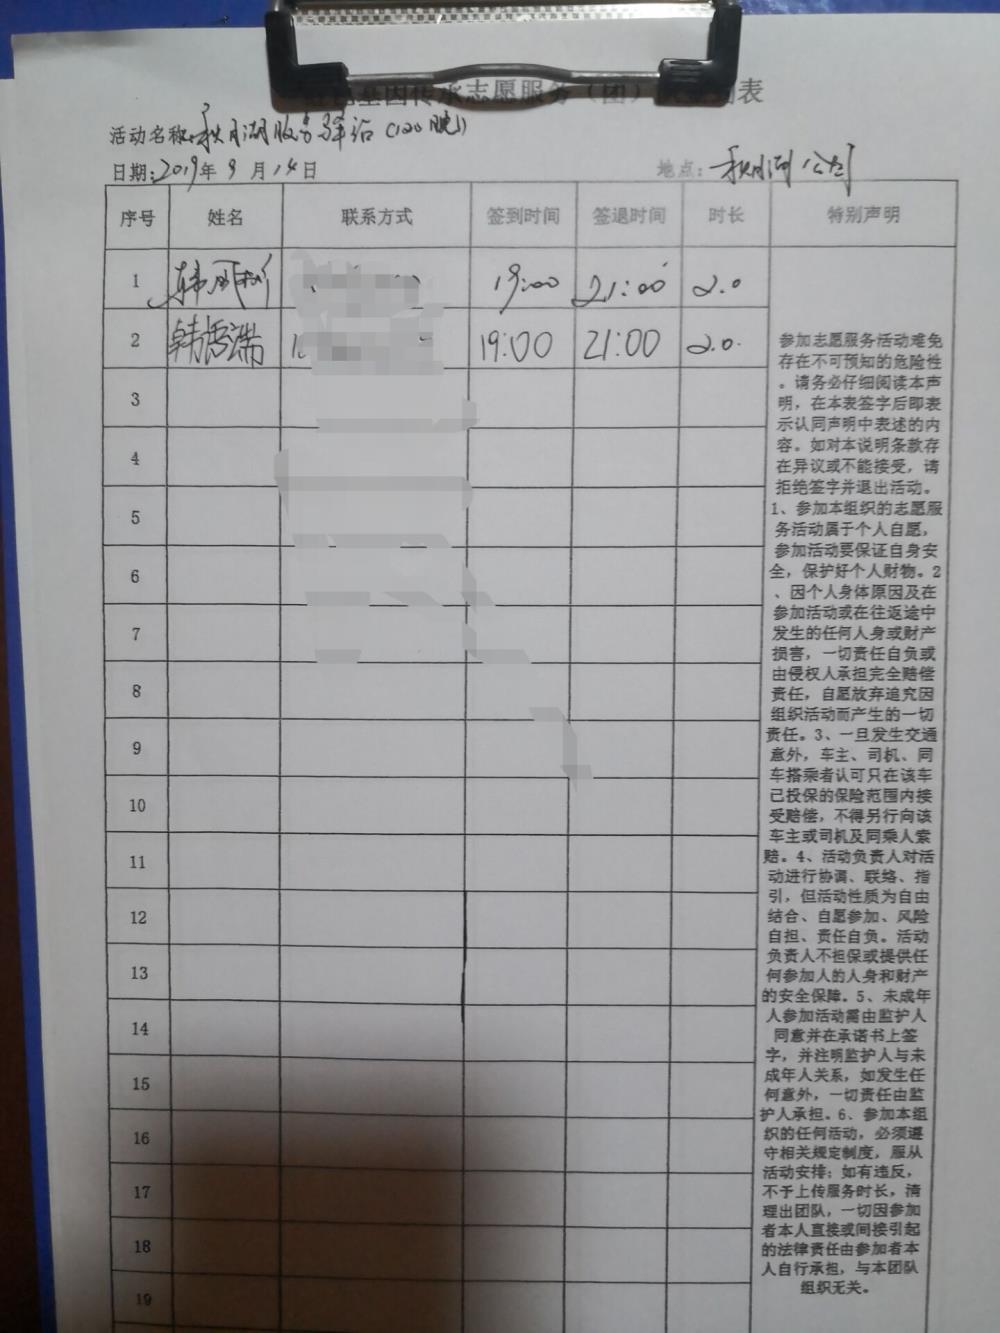 基因传承志愿服务（团）
表
活动名称：秋月湖服务驿站（120晚）
日期：2019年9月14日 地点：秋月湖公园
序号 姓名 联系方式 签到时间 签退时间 时长 特别声明
1 韩 19:00 21:00 2.0
2 韩语端 19:00 21:00 2.0
3
4
5
6
7
8
9
10
11
12
13
14
15
16
17
18
19
参加志愿服务活动难免
存在不可预知的危险性
。请务必仔细阅读本声
明，在本表签字后即表
示认同声明中表述的内
容。如对本说明条款存
在异议或不能接受，请
拒绝签字并退出活动。
1、参加本组织的志愿服
务活动属于个人自愿，
参加活动要保证自身安
全，保护好个人财物。2
、因个人身体原因及在
参加活动或在往返途中
发生的任何人身或财产
损害，一切责任自负或
由侵权人承担完全赔偿
责任，自愿放弃追究因
组织活动而产生的一切
责任。3、一旦发生交通
意外，车主、司机、同
车搭乘者认可只在该车
已投保的保险范围内接
受赔偿，不得另行向该
车主或司机及同乘人索
赔。4、活动负责人对活
动进行协调、联络、指
引，但活动性质为自由
结合、自愿参加、风险
自担、责任自负。活动
负责人不担保或提供任
何参加人的人身和财产
的安全保障。5、未成年
人参加活动需由监护人
同意并在承诺书上签
字，并注明监护人与未
成年人关系，如发生任
何意外，一切责任由监
护人承担。6、参加本组
织的任何活动，必须遵
守相关规定制度，服从
活动安排；如有违反，
不予上传服务时长，清
理出团队，一切因参加
者本人直接或间接引起
的法律责任由参加者本
人自行承担，与本团队
组织无关。